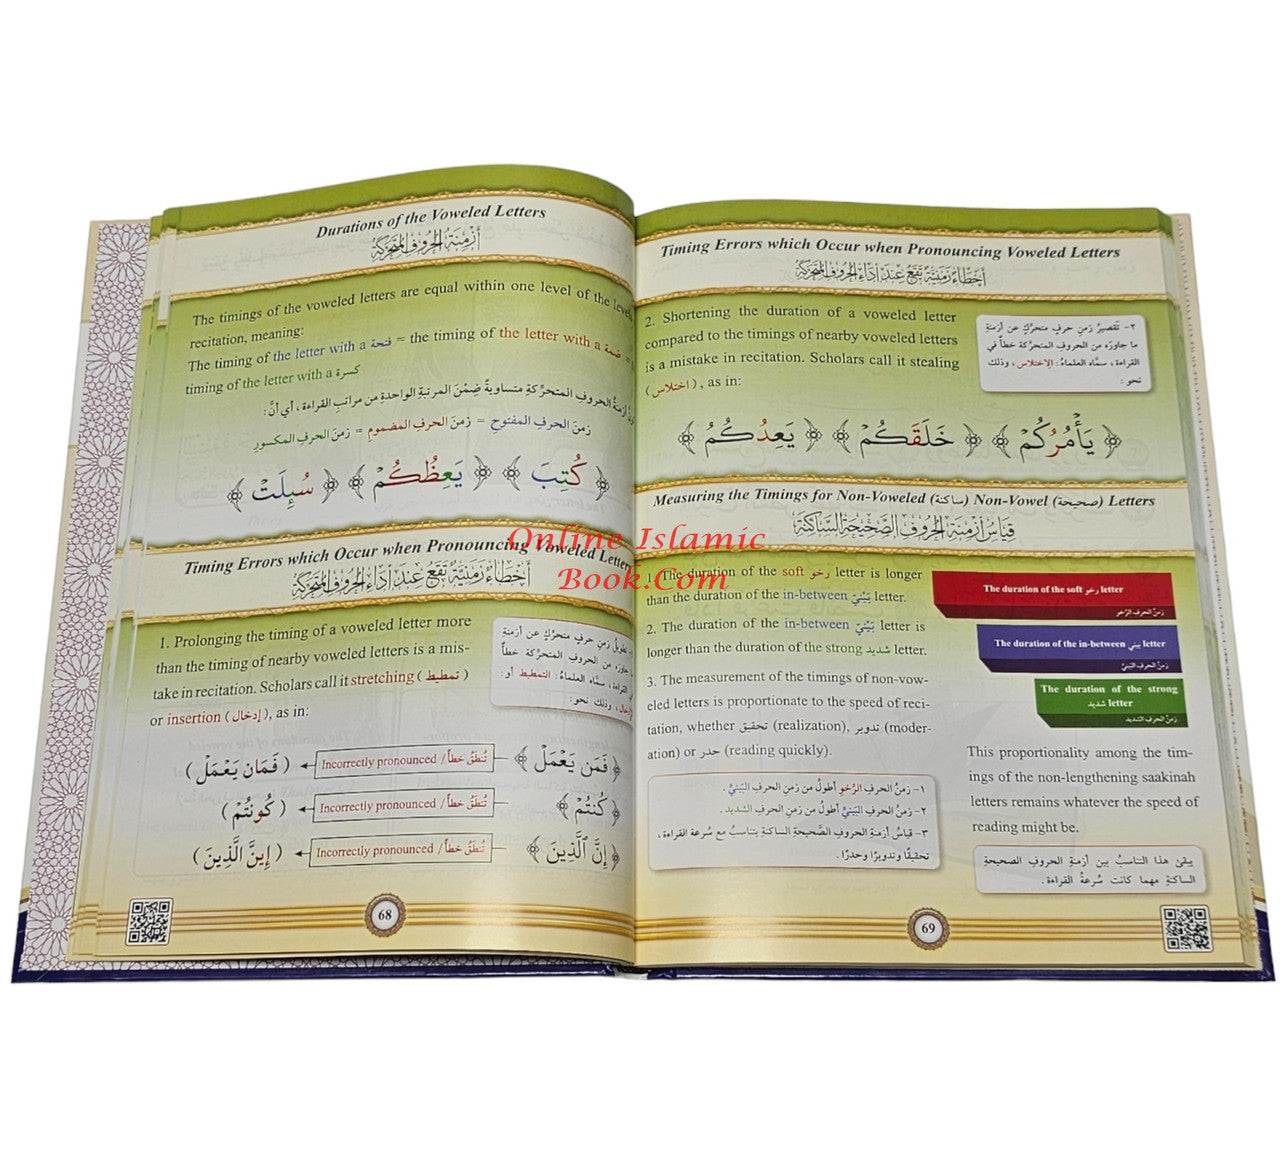 Durations of the Voweled Letters
أزمنة الحروف المتحركة
The timings of the voweled letters are equal within one level of the levels
recitation, meaning:
The timing of the letter with a فتحة = the timing of the letter with a ضمة =
timing of the letter with a كسرة
أزمنةُ الحروفِ المتحرِّكةِ متساويةٌ ضِمْنَ المرتبةِ الواحدةِ من مراتبِ القراءة ، أي أنَّ :
زمنَ الحرفِ المفتوحِ = زمنَ الحرفِ المضمومِ = زمنَ الحرفِ المكسورِ
﴿ كُتِبَ ﴾ ﴿ يَعِظُكُمْ ﴾ ﴿ سُئِلَتْ ﴾
Timing Errors which Occur when Pronouncing Voweled Letters
أخطاء زمنية تقع عند أداء الحروف المتحركة
1. Prolonging the timing of a voweled letter more
than the timing of nearby voweled letters is a mis-
take in recitation. Scholars call it stretching ( تمطيط )
or insertion ( إدخال ), as in:
تطويلُ زمنِ حرفٍ متحركٍ عن أزمنةِ
جاورَه من الحروفِ المتحركةِ خطأٌ
القراءة ، سمَّاه العلماءُ : التمطيط أو :
، وذلك نحو :
﴿ فَمَن يَعْمَلْ ﴾ تُنطَقُ خطأً / Incorrectly pronounced ( فَمَان يَعْمَلْ )
﴿ كُنتُمْ ﴾ تُنطَقُ خطأً / Incorrectly pronounced ( كُونتُمْ )
﴿ إِنَّ ٱلَّذِينَ ﴾ تُنطَقُ خطأً / Incorrectly pronounced ( إِينَّ الَّذِينَ )
68
Timing Errors which Occur when Pronouncing Voweled Letters
أخطاء زمنية تقع عند أداء الحروف المتحركة
2. Shortening the duration of a voweled letter
compared to the timings of nearby voweled letters
is a mistake in recitation. Scholars call it stealing
( اختلاس ) , as in:
٢- تَقصيرُ زمنِ حرفٍ متحرِّكٍ عن أزمنةِ
ما جاورَه من الحروفِ المتحركةِ خطأٌ في
القراءة ، سمَّاه العلماءُ : الاختلاس ، وذلك
نحو :
﴿ يَأْمُرُكُمْ ﴾ ﴿ خَلَقَكُمْ ﴾ ﴿ يَعِدُكُمُ ﴾
Measuring the Timings for Non-Voweled (ساكنة) Non-Vowel (صحيحة) Letters
قياس أزمنة الحروف الصحيحة الساكنة
1. The duration of the soft رخو letter is longer
than the duration of the in-between بَيْنيّ letter.
2. The duration of the in-between بَيْنيّ letter is
longer than the duration of the strong شديد letter.
3. The measurement of the timings of non-vow-
eled letters is proportionate to the speed of reci-
tation, whether تحقيق (realization), تدوير (moder-
ation) or حدر (reading quickly).
The duration of the soft رخو letter
زمنُ الحرفِ الرَّخو
The duration of the in-between بيني letter
زمنُ الحرفِ البَينيّ
The duration of the strong
شديد letter
زمنُ الحرفِ الشديد
This proportionality among the tim-
ings of the non-lengthening saakinah
letters remains whatever the speed of
reading might be.
١- زمنُ الحرفِ الرَّخوِ أطولُ من زمنِ الحرفِ البَينيِّ .
٢- زمنُ الحرفِ البَينيِّ أطولُ من زمنِ الحرفِ الشديد .
٣- قياسُ أزمنةِ الحروفِ الصَّحيحةِ الساكنةِ يتناسبُ مع سُرعة القراءة ،
تحقيقًا وتدويرًا وحدرًا .
يبقىٰ هذا التناسبُ بين أزمنةِ الحروفِ الصحيحةِ
الساكنةِ مهما كانت سُرعةُ القراءة .
69
Online Islamic
Book.Com